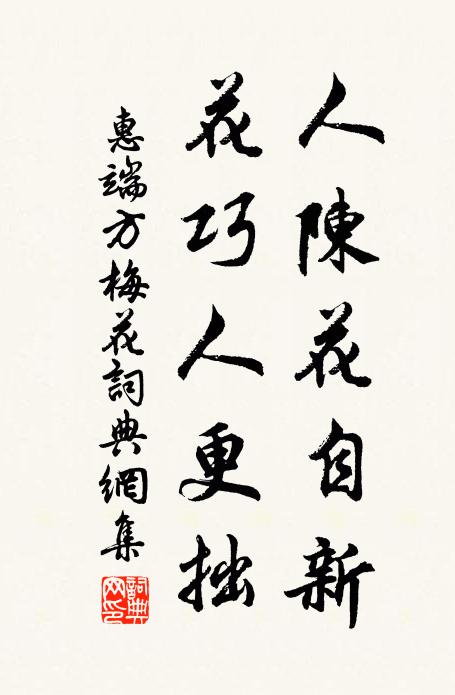 人陳花自新
花巧人更拙
惠端方梅花詞典網集
詞典網印